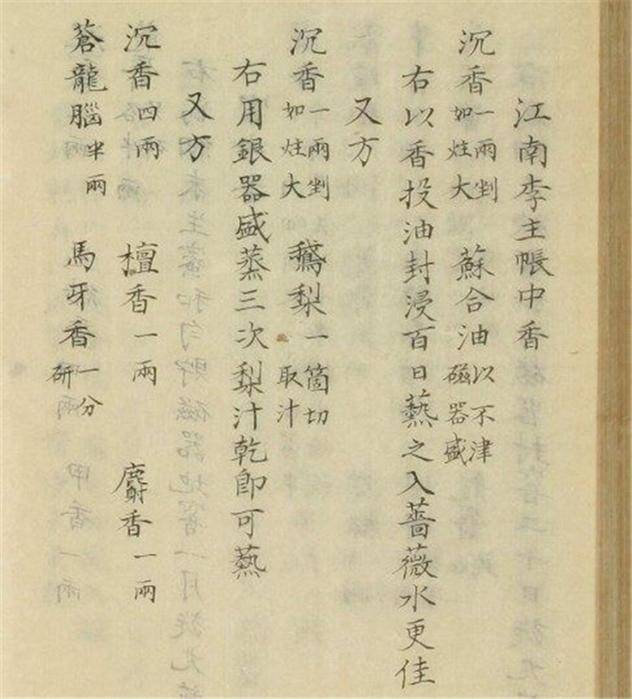 江南李主帳中香
沉香一兩剉如炷大 蘇合油以不津磁器盛
右以香投油封浸百日爇之入薔薇水更佳
又方
沉香一兩剉如炷大 鵝梨一箇切取汁
右用銀器盛蒸三次梨汁乾即可爇
又方
沉香四兩 檀香一兩 麝香一兩
蒼龍腦半兩 馬牙香一分研